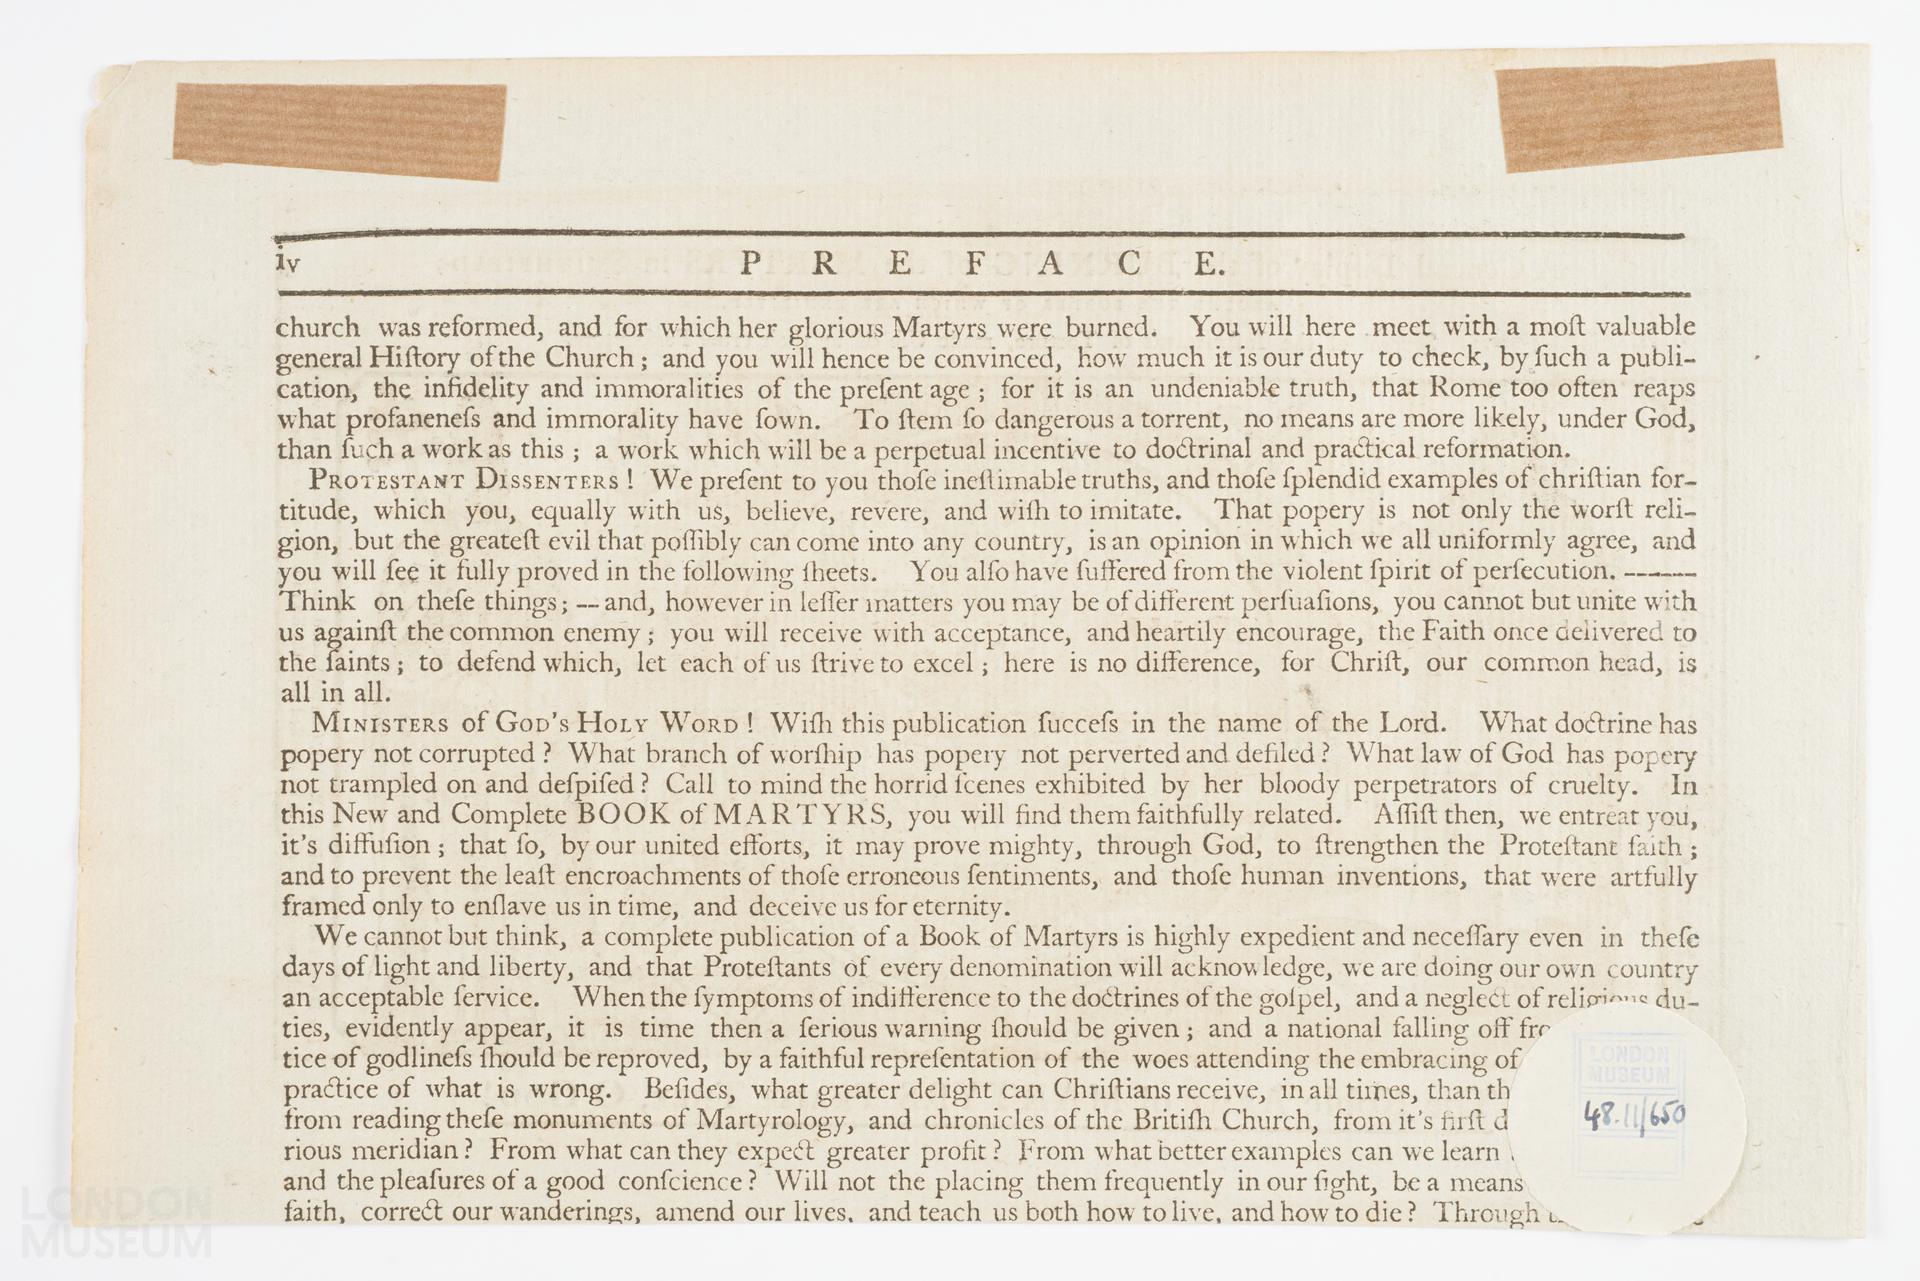 iv
P R E F A C E.
church was reformed, and for which her glorious Martyrs were burned. You will here meet with a moſt valuable
general Hiſtory of the Church; and you will hence be convinced, how much it is our duty to check, by ſuch a publi-
cation, the infidelity and immoralities of the preſent age; for it is an undeniable truth, that Rome too often reaps
what profaneneſs and immorality have ſown. To ſtem ſo dangerous a torrent, no means are more likely, under God,
than ſuch a work as this; a work which will be a perpetual incentive to doctrinal and practical reformation.
PROTESTANT DISSENTERS! We preſent to you thoſe ineſtimable truths, and thoſe ſplendid examples of chriſtian for-
titude, which you, equally with us, believe, revere, and wiſh to imitate. That popery is not only the worſt reli-
gion, but the greateſt evil that poſſibly can come into any country, is an opinion in which we all uniformly agree, and
you will ſee it fully proved in the following ſheets. You alſo have ſuffered from the violent ſpirit of perſecution. ———
Think on theſe things; — and, however in leſſer matters you may be of different perſuaſions, you cannot but unite with
us againſt the common enemy; you will receive with acceptance, and heartily encourage, the Faith once delivered to
the ſaints; to defend which, let each of us ſtrive to excel; here is no difference, for Chriſt, our common head, is
all in all.
MINISTERS of GOD'S HOLY WORD! Wiſh this publication ſucceſs in the name of the Lord. What doctrine has
popery not corrupted? What branch of worſhip has popery not perverted and defiled? What law of God has popery
not trampled on and deſpiſed? Call to mind the horrid ſcenes exhibited by her bloody perpetrators of cruelty. In
this New and Complete BOOK of MARTYRS, you will find them faithfully related. Aſſiſt then, we entreat you,
it's diffuſion; that ſo, by our united efforts, it may prove mighty, through God, to ſtrengthen the Proteſtant faith;
and to prevent the leaſt encroachments of thoſe erroneous ſentiments, and thoſe human inventions, that were artfully
framed only to enſlave us in time, and deceive us for eternity.
We cannot but think, a complete publication of a Book of Martyrs is highly expedient and neceſſary even in theſe
days of light and liberty, and that Proteſtants of every denomination will acknowledge, we are doing our own country
an acceptable ſervice. When the ſymptoms of indifference to the doctrines of the goſpel, and a neglect of religious du-
ties, evidently appear, it is time then a ſerious warning ſhould be given; and a national falling off
tice of godlineſs ſhould be reproved, by a faithful repreſentation of the woes attending the embracing of
practice of what is wrong. Beſides, what greater delight can Chriſtians receive, in all times, than
from reading theſe monuments of Martyrology, and chronicles of the Britiſh Church, from it's firſt
rious meridian? From what can they expect greater profit? From what better examples can we learn
and the pleaſures of a good conſcience? Will not the placing them frequently in our ſight, be a means
faith, correct our wanderings, amend our lives, and teach us both how to live, and how to die? Through
LONDON
MUSEUM
48.11/650
LONDON
MUSEUM